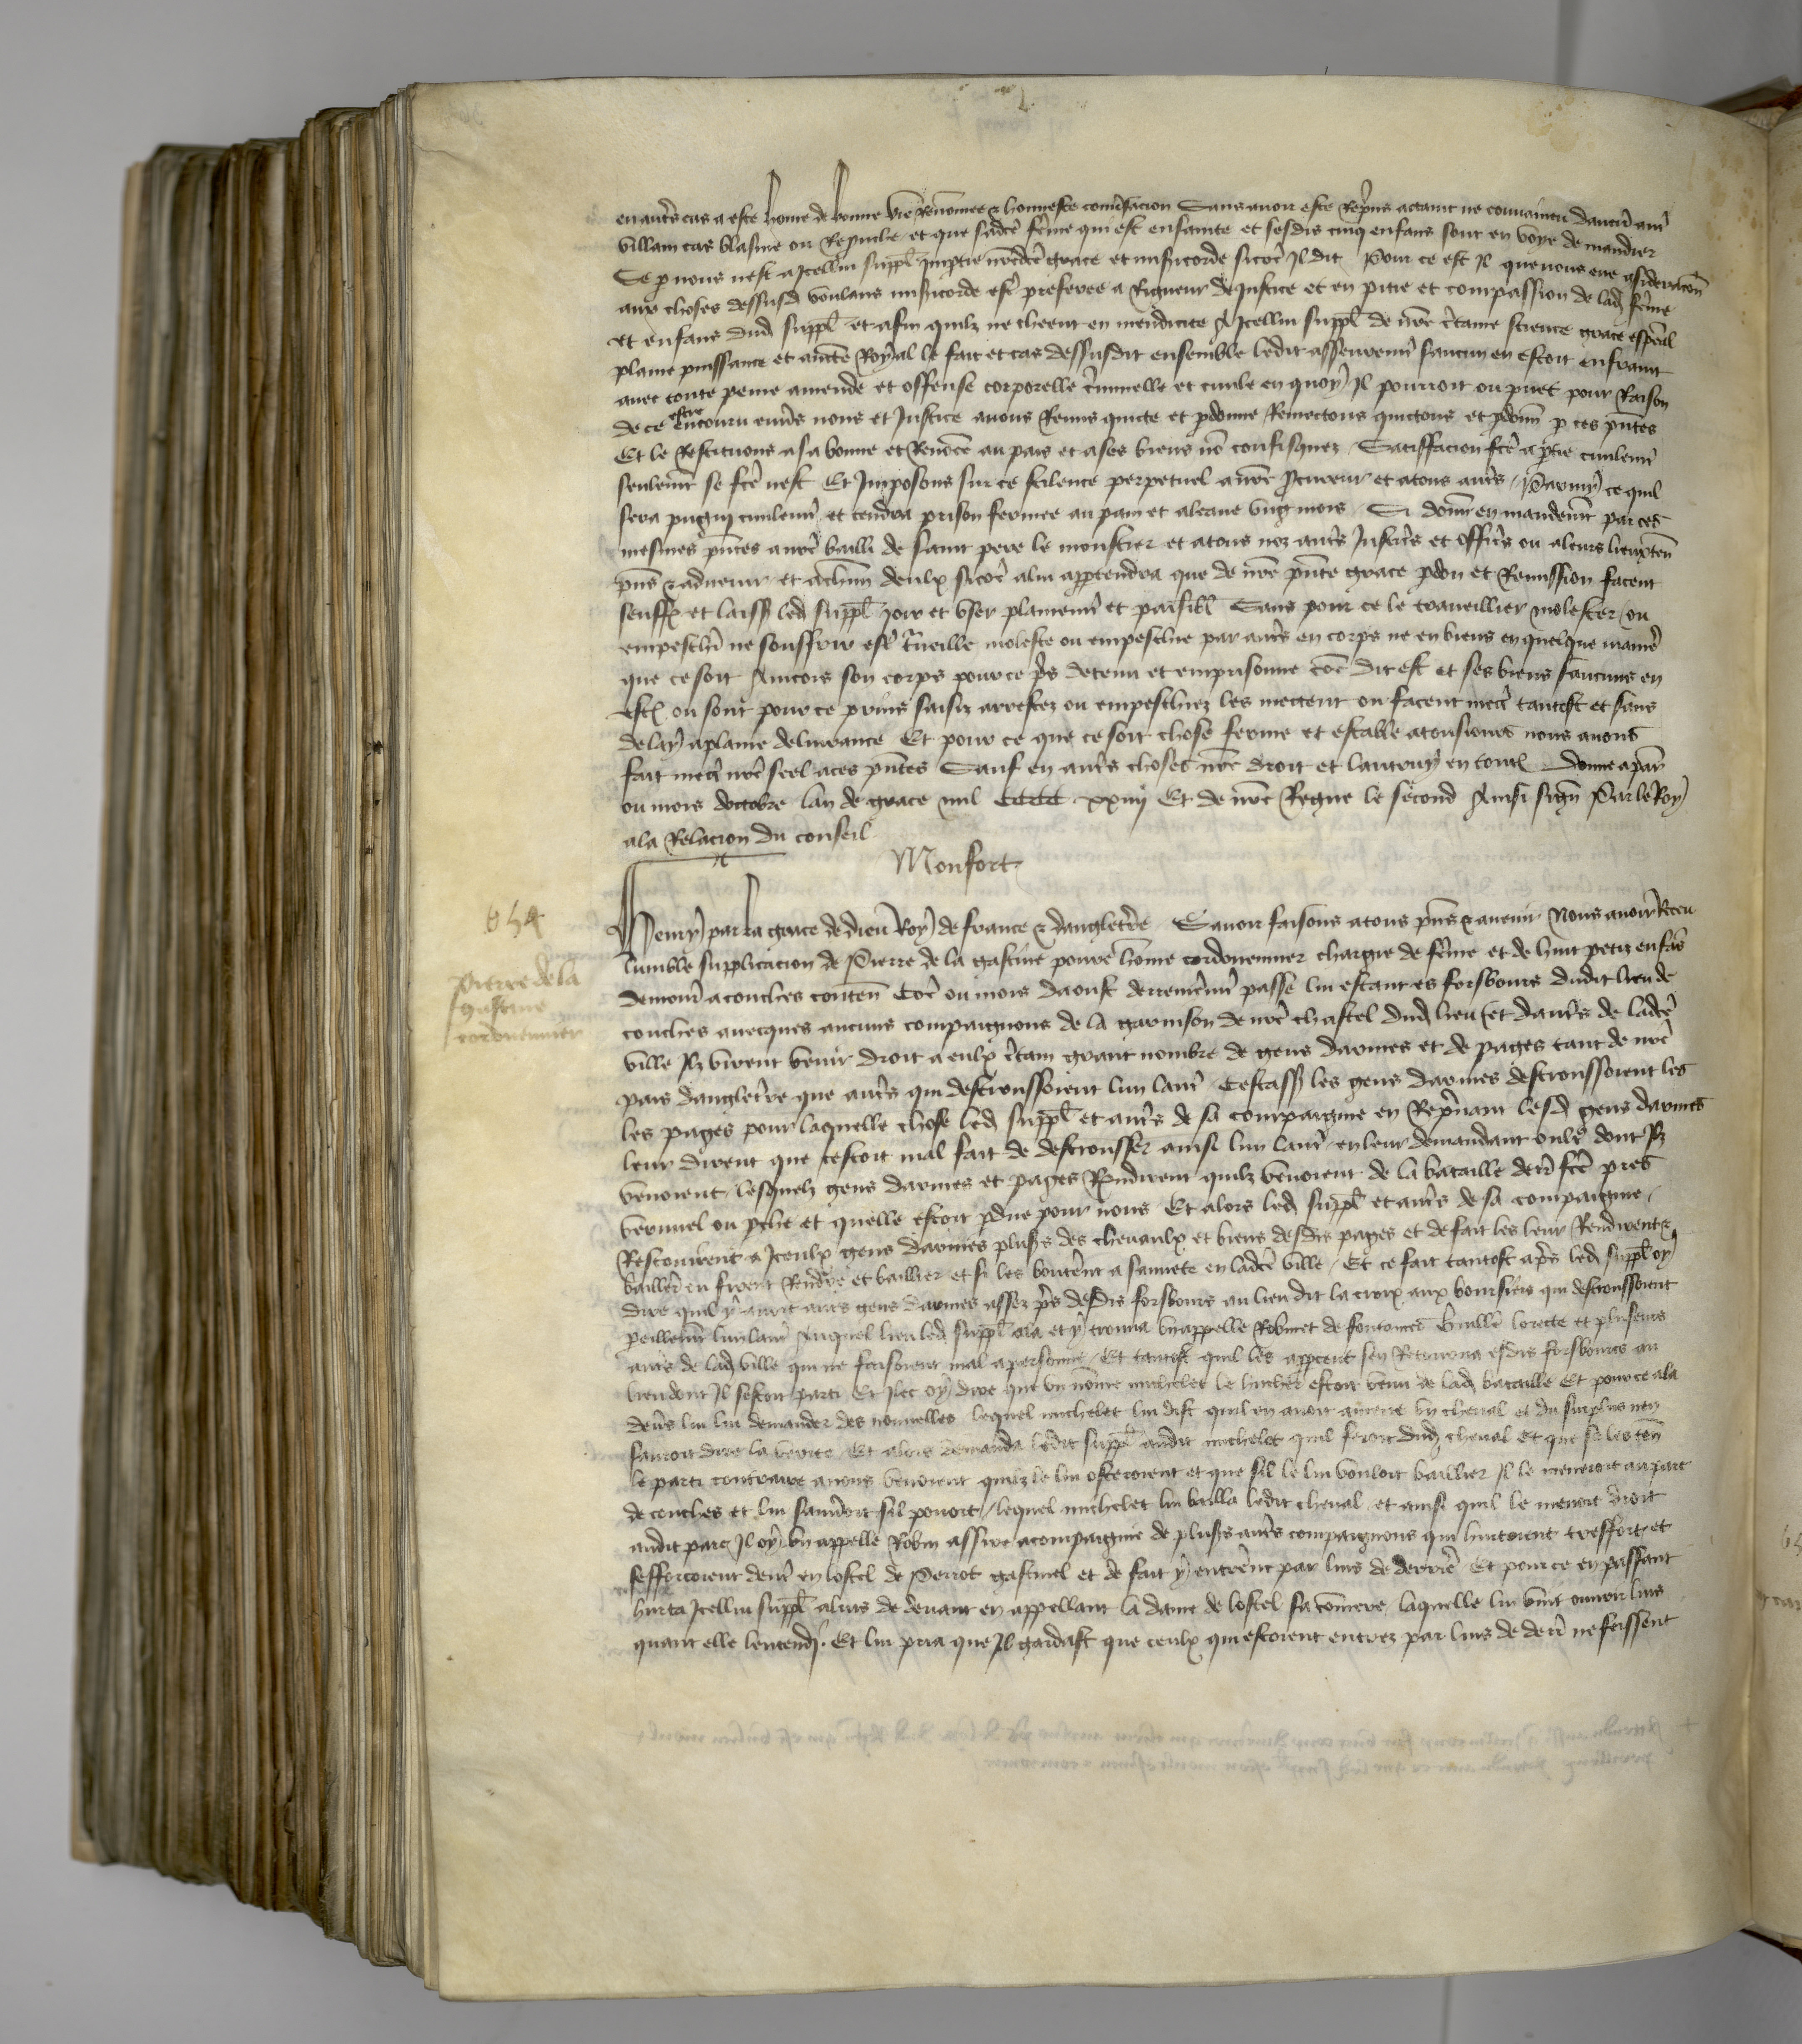 en autres cas a este home de bonne vie renommee & honneste conversacion Sans avoir este Reprins actaint ne convaincu daucun autre
villain cas blasme ou Reprouche et que sadicte feme qui est ensainte et sesdis cinq enfans sont en voye de mandier
Se par nous nest a Icellui suppl impartie nostredicte grace et misericorde sicomme Il dit Pour ce est Il que nous eue consideracion
aux choses dessusd voulans misericorde estre preferee a Rigueur de Justice et en pitie et compassion de lad feme
et enfans dud suppl et afin quilz ne cheent en mendicite A Icellui suppl de nostre certaine science grace especial
plaine puissance et auctorite Royal le fait et cas dessusdit ensemble ledit asseurement saucun en estoit enfraint
avec toute peine amende et offense corporelle criminelle et civile en quoy Il pourroit ou puet pour Raison
de ce estre encouru envers nous et Justice avons Remis quicte et pardonne Remectons quictons et pardonnons par ces presentes
Et le Restituons a sa bonne et Renommee au pais et a ses biens non confisquez Satisfacion faicte a partie civilement
seulement se faicte nest Et Imposons sur ce scilence perpetuel a nostre Procureur et a tous autres Parmy ce quil
sera pugny civilement et tendra prison fermee au pain et a leaue ung mois Si donnons en mandement par ces
mesmes presentes a nostre bailli de saint pere le monstier et a tous noz autres Justiciers et officiers ou a leurs lieuxtenans
presens & advenir et a chascun deulx sicomme a lui appartendra que de nostre presente grace pardon et Remission facent
seuffrent et laissent led suppl joir et user plainement et paisiblement Sans pour ce le traveillier molester ou
empescher ne souffrir estre traveille moleste ou empeschie par autres en corps ne en biens en quelque maniere
que ce soit Aincois son corps pour ce pris detenu et emprisonne comme dit est et ses biens saucuns en
estoient ou sont pour ce prins saisiz arrestez ou empeschiez les mectent ou facent mectre tantost et sans
delay a plaine delivrance Et pour ce que ce soit chose ferme et estable a tousiours nous avons
fait mectre nostre seel a ces presentes Sauf en autres choses nostre droit et lautruy en toutes Donne a paris
ou mois doctobre lan de grace mil CCCC xxiiij Et de nostre Regne le second Ainsi signe Par le Roy
a la Relacion du conseil
Monfort
654
Pierre de la
gastine
cordouennier
Henry par la grace de dieu Roy de france & dangleterre Savoir faisons a tous presens & avenir Nous avoir Receu
lumble supplicacion de Pierre de la gastine povre home cordouennier chargie de feme et de huit petiz enfans
demourant a conches contenant Comme ou mois daoust derrenierement passe lui estant es forsbours dudit lieu de
conches avecques aucuns compaignons de la garnison de nostre chastel dud lieu et dautres de ladicte
ville Ilz virent venir droit a eulx certain grant nombre de gens darmes et de pages tant de nostre
pais dangleterre que autres qui destroussoient lun lautre Cestassavoir les gens darmes destroussoient les
les pages pour laquelle chose led suppl et autres de sa compaignie en Reprenant lesd gens darmes
leur dirent que cestoit mal fait de destrousser ainsi lun lautre en leur demandant oultre dont Ilz
venoient lesquelz gens darmes et pages Respondirent quilz venoient de la bataille derrenierement faicte pres
vernueil ou perche et quelle estoit perdue pour nous Et alors led suppl et autres de sa compaignie
Rescouirent a Iceulx gens darmes plusieurs des chevaulx et biens desdis pages et de fait les leur Rendirent &
baillerent firent Rendre et baillier et si les bouterent a sauvete en ladicte ville Et ce fait tantost apres led suppl oy
dire quil y avoit autres gens darmes assez pres desdis forsbours au lieu dit la croix aux boursiers qui destroussoient
pareillement lun lautre Auquel lieu led suppl ala et y trouva un appelle Robinet de fontaines Guille lorette et pluseurs
autres de lad ville qui ne faisoient mal a personne Et tantost quil les appercut sen Retourna esdis forsbours au
lieu dont Il sestoit parti Et Ilec oy dire que un nomme michelet le huchier estoit venu de lad bataille Et pour ce ala
devers lui lui demander des nouvelles lequel michelet lui dist quil en avoit amene un cheval et du surplus nen
sauroit dire la verite Et alors demanda ledit suppl audit michelet quil feroit dud cheval et que se les tenans
le parti contraire a nous venoient quilz le lui osteroient et que sil le lui vouloit baillier Il le meneroit au parc
de conches et lui sauveroit sil povoit lequel michelet lui bailla ledit cheval et ainsi quil le menoit droit
audit parc Il oy un appelle Robin assire acompaignie de plusieurs autres compaignons qui hurtoient tresfort et
sefforcoient dentrer en lostel de Perrot gastinel et de fait y entrerent par luis de derriere Et pour ce en passant
hurta Icellui suppl a luis de devant en appellant la dame de lostel sa commere laquelle lui vint ouvrir luis
quant elle lentendi Et lui pria que Il gardast que ceulx qui estoient entrez par luis de derriere ne feissent